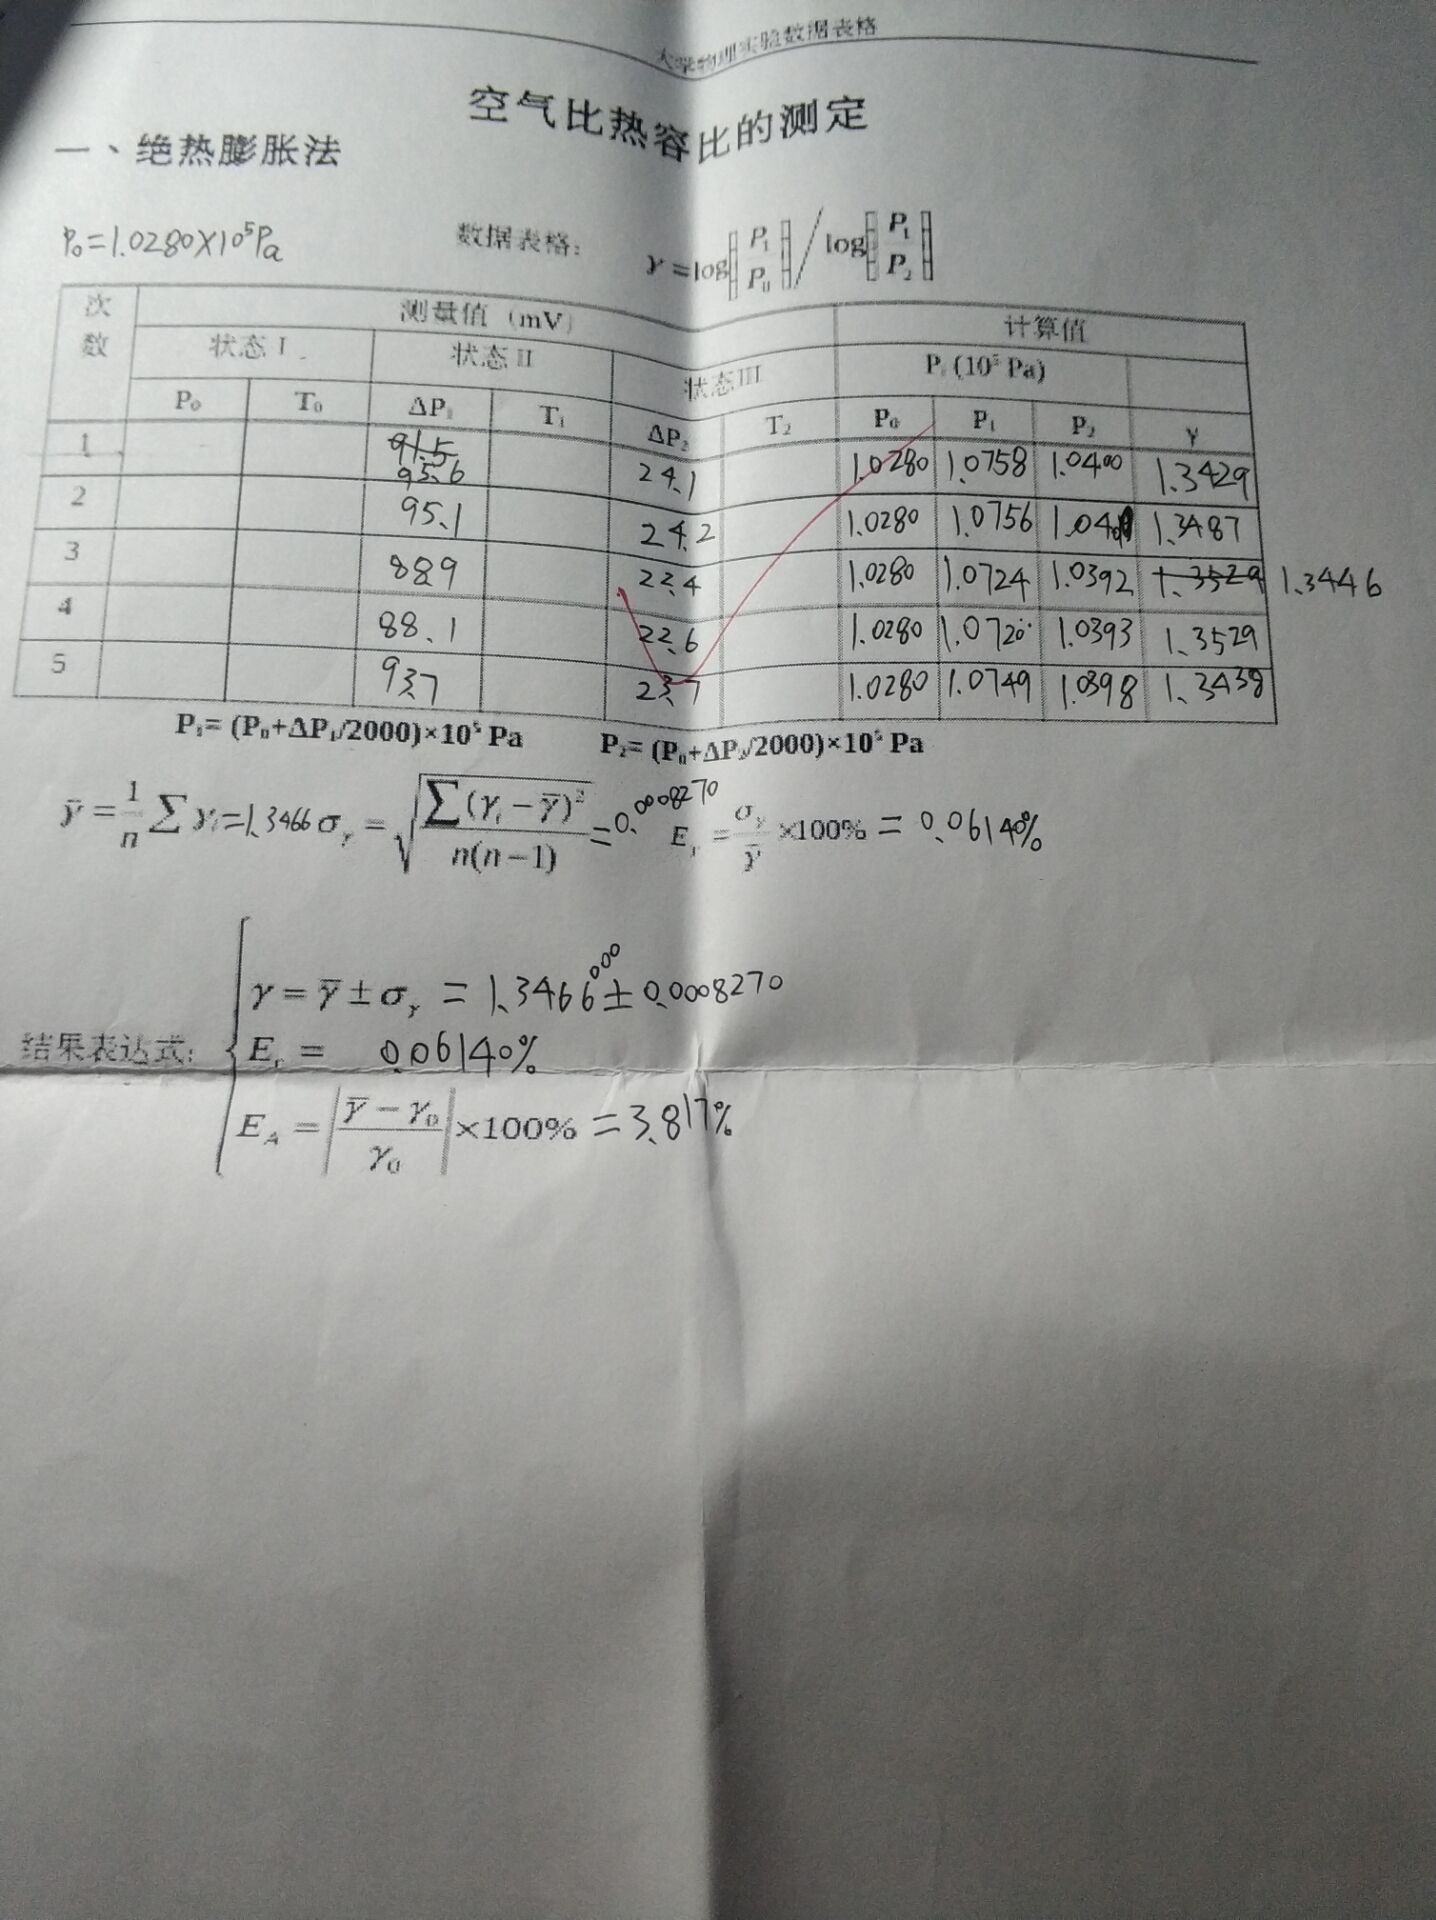 大学物理实验数据表格
空气比热容比的测定
一、绝热膨胀法
P₀=1.0280×10⁵Pa 数据表格: γ=log[P₁/P₀]/log[P₁/P₂]
次数 测量值 (mV) 计算值
状态 I 状态 II 状态 III Pᵢ (10⁵ Pa)
P₀ T₀ ΔP₁ T₁ ΔP₂ T₂ P₀ P₁ P₂ γ
1 91.5 95.6 24.1 1.0280 1.0758 1.0400 1.3429
2 95.1 24.2 1.0280 1.0756 1.0401 1.3487
3 88.9 22.4 1.0280 1.0724 1.0392 1.3529 1.3446
4 88.1 22.6 1.0280 1.0720 1.0393 1.3529
5 93.7 23.7 1.0280 1.0749 1.0398 1.3438
P₁= (P₀+ΔP₁/2000)×10⁵ Pa P₂= (P₀+ΔP₂/2000)×10⁵ Pa
γ̄ = 1/n ∑ γᵢ=1.3466 σᵧ = √(∑(γᵢ−γ̄)²/n(n−1)) =0.0008270 Eᵣ = σᵧ/γ̄ ×100% = 0.06140%
γ = γ̄ ± σᵧ = 1.3466000 ± 0.0008270
结果表达式: Eᵣ = 0.06140%
E_A = |γ̄ − γ₀/γ₀| ×100% = 3.817%